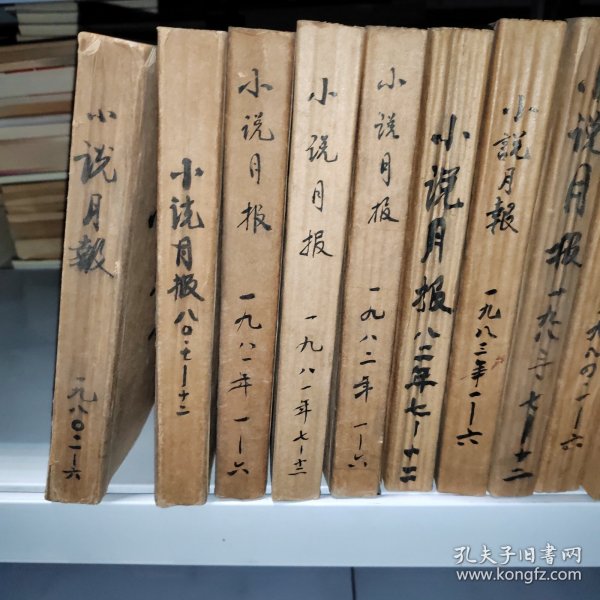 小说月報
一九八〇 1-六
小说月报
八〇.七-十二
小说月报
一九八一年 一-六
小说月报
一九八一年七-十二
小说月报
一九八二年 一-六
小说月报
八二年七-十二
小説月報
一九八三年一-六
小说月报
一九八三年 七-十二
孔夫子旧书网
www.kongfz.com